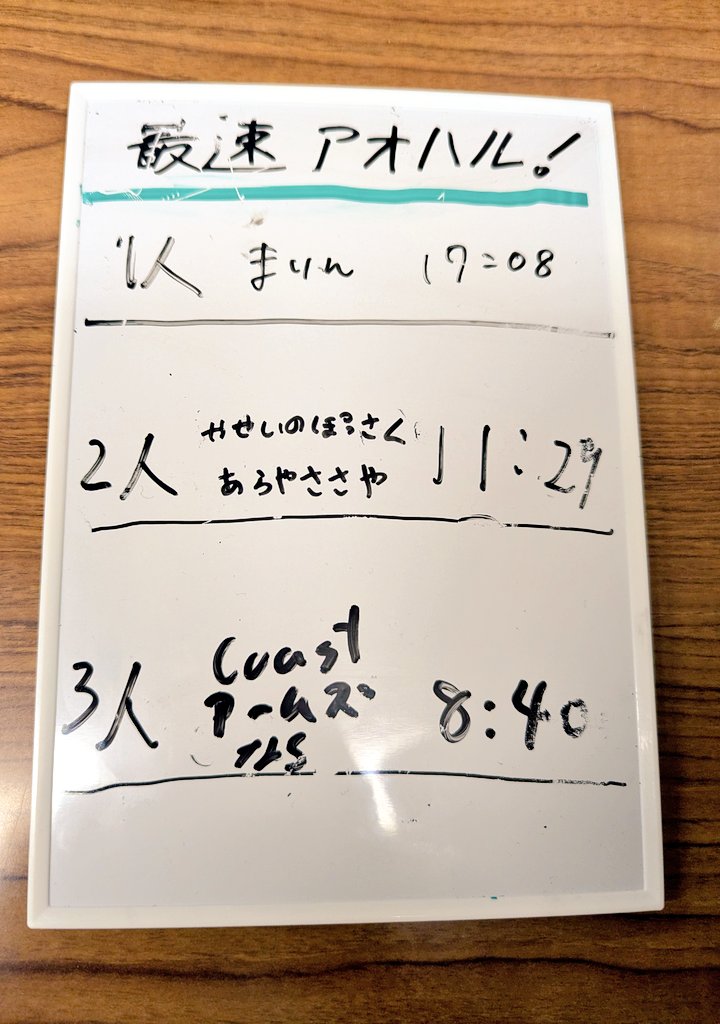 最速 アオハル!
1人 まりん 17:08
2人 やせいのぼっさく
あらやささや 11:29
3人 Coast
アームズ
8:40